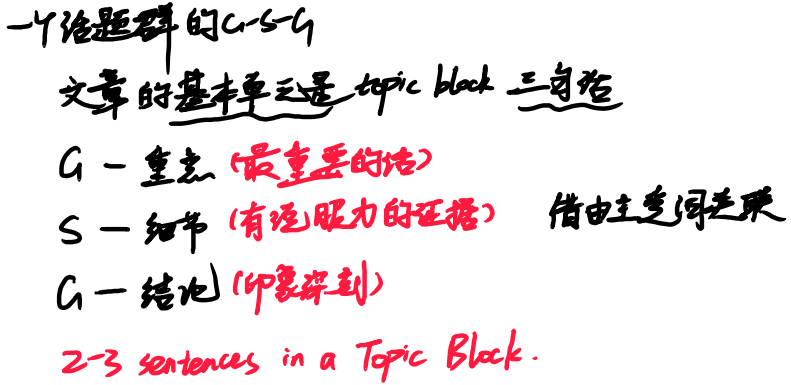 一个话题群的G-S-G
文章的基本单元是 topic block 三句话
G — 重点 (最重要的话)
S — 细节 (有说服力的证据) 借由主变词关联
G — 结论 (印象深刻)
2-3 sentences in a Topic Block.